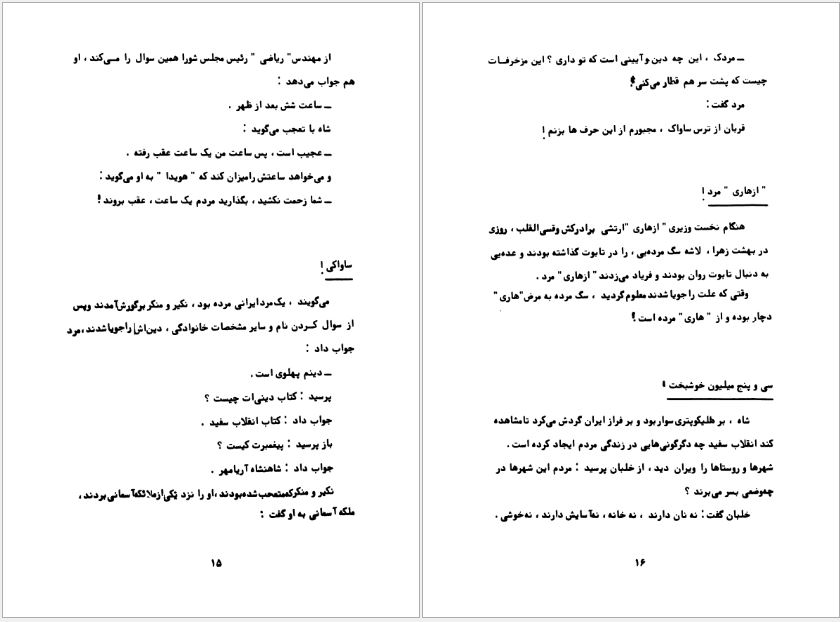 از مهندس" ریاضی " رئیس مجلس شورا همین سوال را می‌کند ، او
هم جواب می‌دهد :
ــ ساعت شش بعد از ظهر .
شاه با تعجب می‌گوید :
ــ عجیب است ، پس ساعت من یک ساعت عقب رفته .
و می‌خواهد ساعتش رامیزان کند که " هویدا " به او می‌گوید :
ــ شما زحمت نکشید ، بگذارید مردم یک ساعت ، عقب بروند !
ساواکی !
می‌گویند ، یک‌مردایرانی مرده بود ، نکیر و منکر برگورش‌آمدند وپس
از سوال کردن نام و سایر مشخصات خانوادگی ، دین‌اش راجویاشدند ، مرد
جواب داد :
ــ دینم پهلوی است .
پرسید : کتاب دینی‌ات چیست ؟
جواب داد : کتاب انقلاب سفید .
باز پرسید : پیغمبرت کیست ؟
جواب داد : شاهنشاه آریامهر .
نکیر و منکرکه‌متعجب‌شده‌بودند ،او را نزد یکی‌ازملائکه‌آسمانی‌بردند ،
ملکه آسمانی به او گفت :
۱۵
ــ مردک ، این چه دین و آیینی است که تو داری ؟ این مزخرفات
چیست که پشت سر هم قطار می‌کنی؟!
مرد گفت :
قربان از ترس ساواک ، مجبورم از این حرف ها بزنم !
" ازهاری " مرد !
هنگام نخست وزیری " ازهاری "ارتشی برادرکش وقسی‌القلب ، روزی
در بهشت زهرا ، لاشه سگ مرده‌یی ، را در تابوت گذاشته بودند و عده‌یی
به دنبال تابوت روان بودند و فریاد می‌زدند " ازهاری " مرد .
وقتی که علت را جویا شدند معلوم گردید ، سگ مرده به مرض"هاری "
دچار بوده و از " هاری" مرده است !
سی و پنج میلیون خوشبخت !
شاه ، بر هلیکوپتری‌سوار بود و بر فراز ایران گردش می‌کرد تامشاهده
کند انقلاب سفید چه دگرگونی‌هایی در زندگی مردم ایجاد کرده است .
شهرها و روستاها را ویران دید ، از خلبان پرسید : مردم این شهرها در
چه‌وضعی بسر می‌برند ؟
خلبان گفت : نه نان دارند ، نه خانه ، نه‌آسایش دارند ، نه‌خوشی .
۱۶